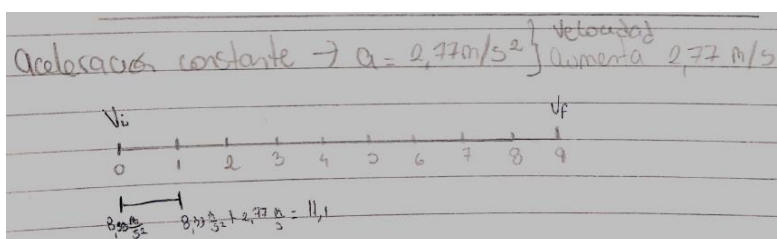 aceleración constante → a = 2,77m/s² } Velocidad aumenta 2,77 m/s
Vi Vf
0 1 2 3 4 5 6 7 8 9
8,33 m/s² 8,33 m/s² + 2,77 m/s = 11,1